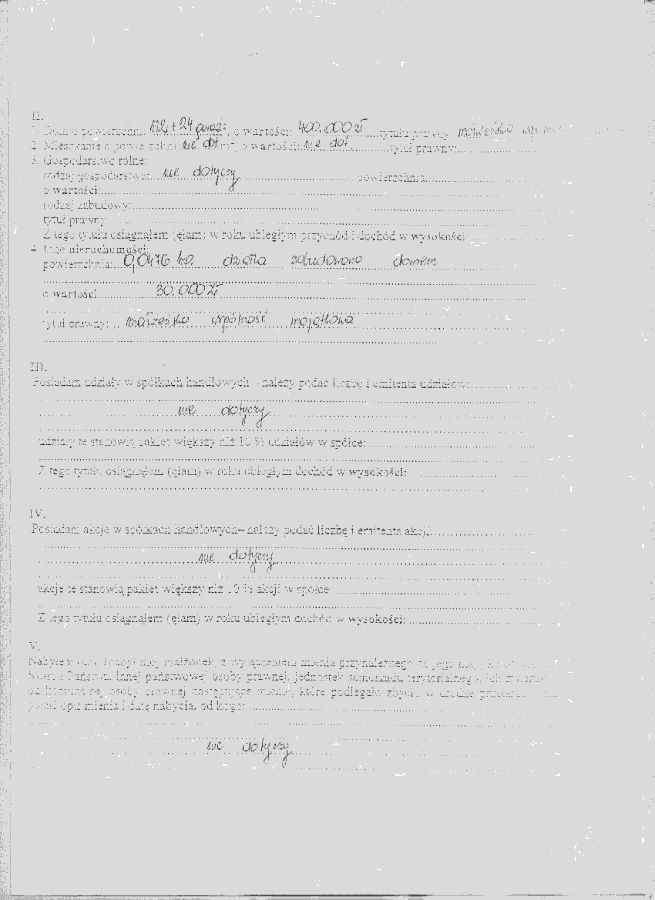 II.
1. Dom o powierzchni: + 24 garaż m², o wartości: 400.000 zł tytuł prawny: małżeńska
2. Mieszkanie o powierzchni: nie dot. m², o wartości: nie dot. tytuł prawny:
3. Gospodarstwo rolne:
rodzaj gospodarstwa: nie dotyczy, powierzchnia:
o wartości:
rodzaj zabudowy:
tytuł prawny:
Z tego tytułu osiągnąłem (ęłam) w roku ubiegłym przychód i dochód w wysokości:
4. Inne nieruchomości:
powierzchnia: 0,0476 ha działka zabudowana domem
o wartości: 30.000 zł
tytuł prawny: małżeńska wspólność majątkowa
III.
Posiadam udziały w spółkach handlowych – należy podać liczbę i emitenta udziałów:
nie dotyczy
udziały te stanowią pakiet większy niż 10 % udziałów w spółce:
Z tego tytułu osiągnąłem (ęłam) w roku ubiegłym dochód w wysokości:
IV.
Posiadam akcje w spółkach handlowych – należy podać liczbę i emitenta akcji:
nie dotyczy
akcje te stanowią pakiet większy niż 10 % akcji w spółce:
Z tego tytułu osiągnąłem (ęłam) w roku ubiegłym dochód w wysokości:
V.
Nabyłem (am) (nabył mój małżonek, z wyłączeniem mienia przynależnego do jego majątku
Skarbu Państwa, innej państwowej osoby prawnej, jednostek samorządu terytorialnego, ich związków
od komunalnej osoby prawnej następujące mienie, które podlegało zbyciu w drodze przetargu
podać opis mienia i datę nabycia, od kogo:
nie dotyczy